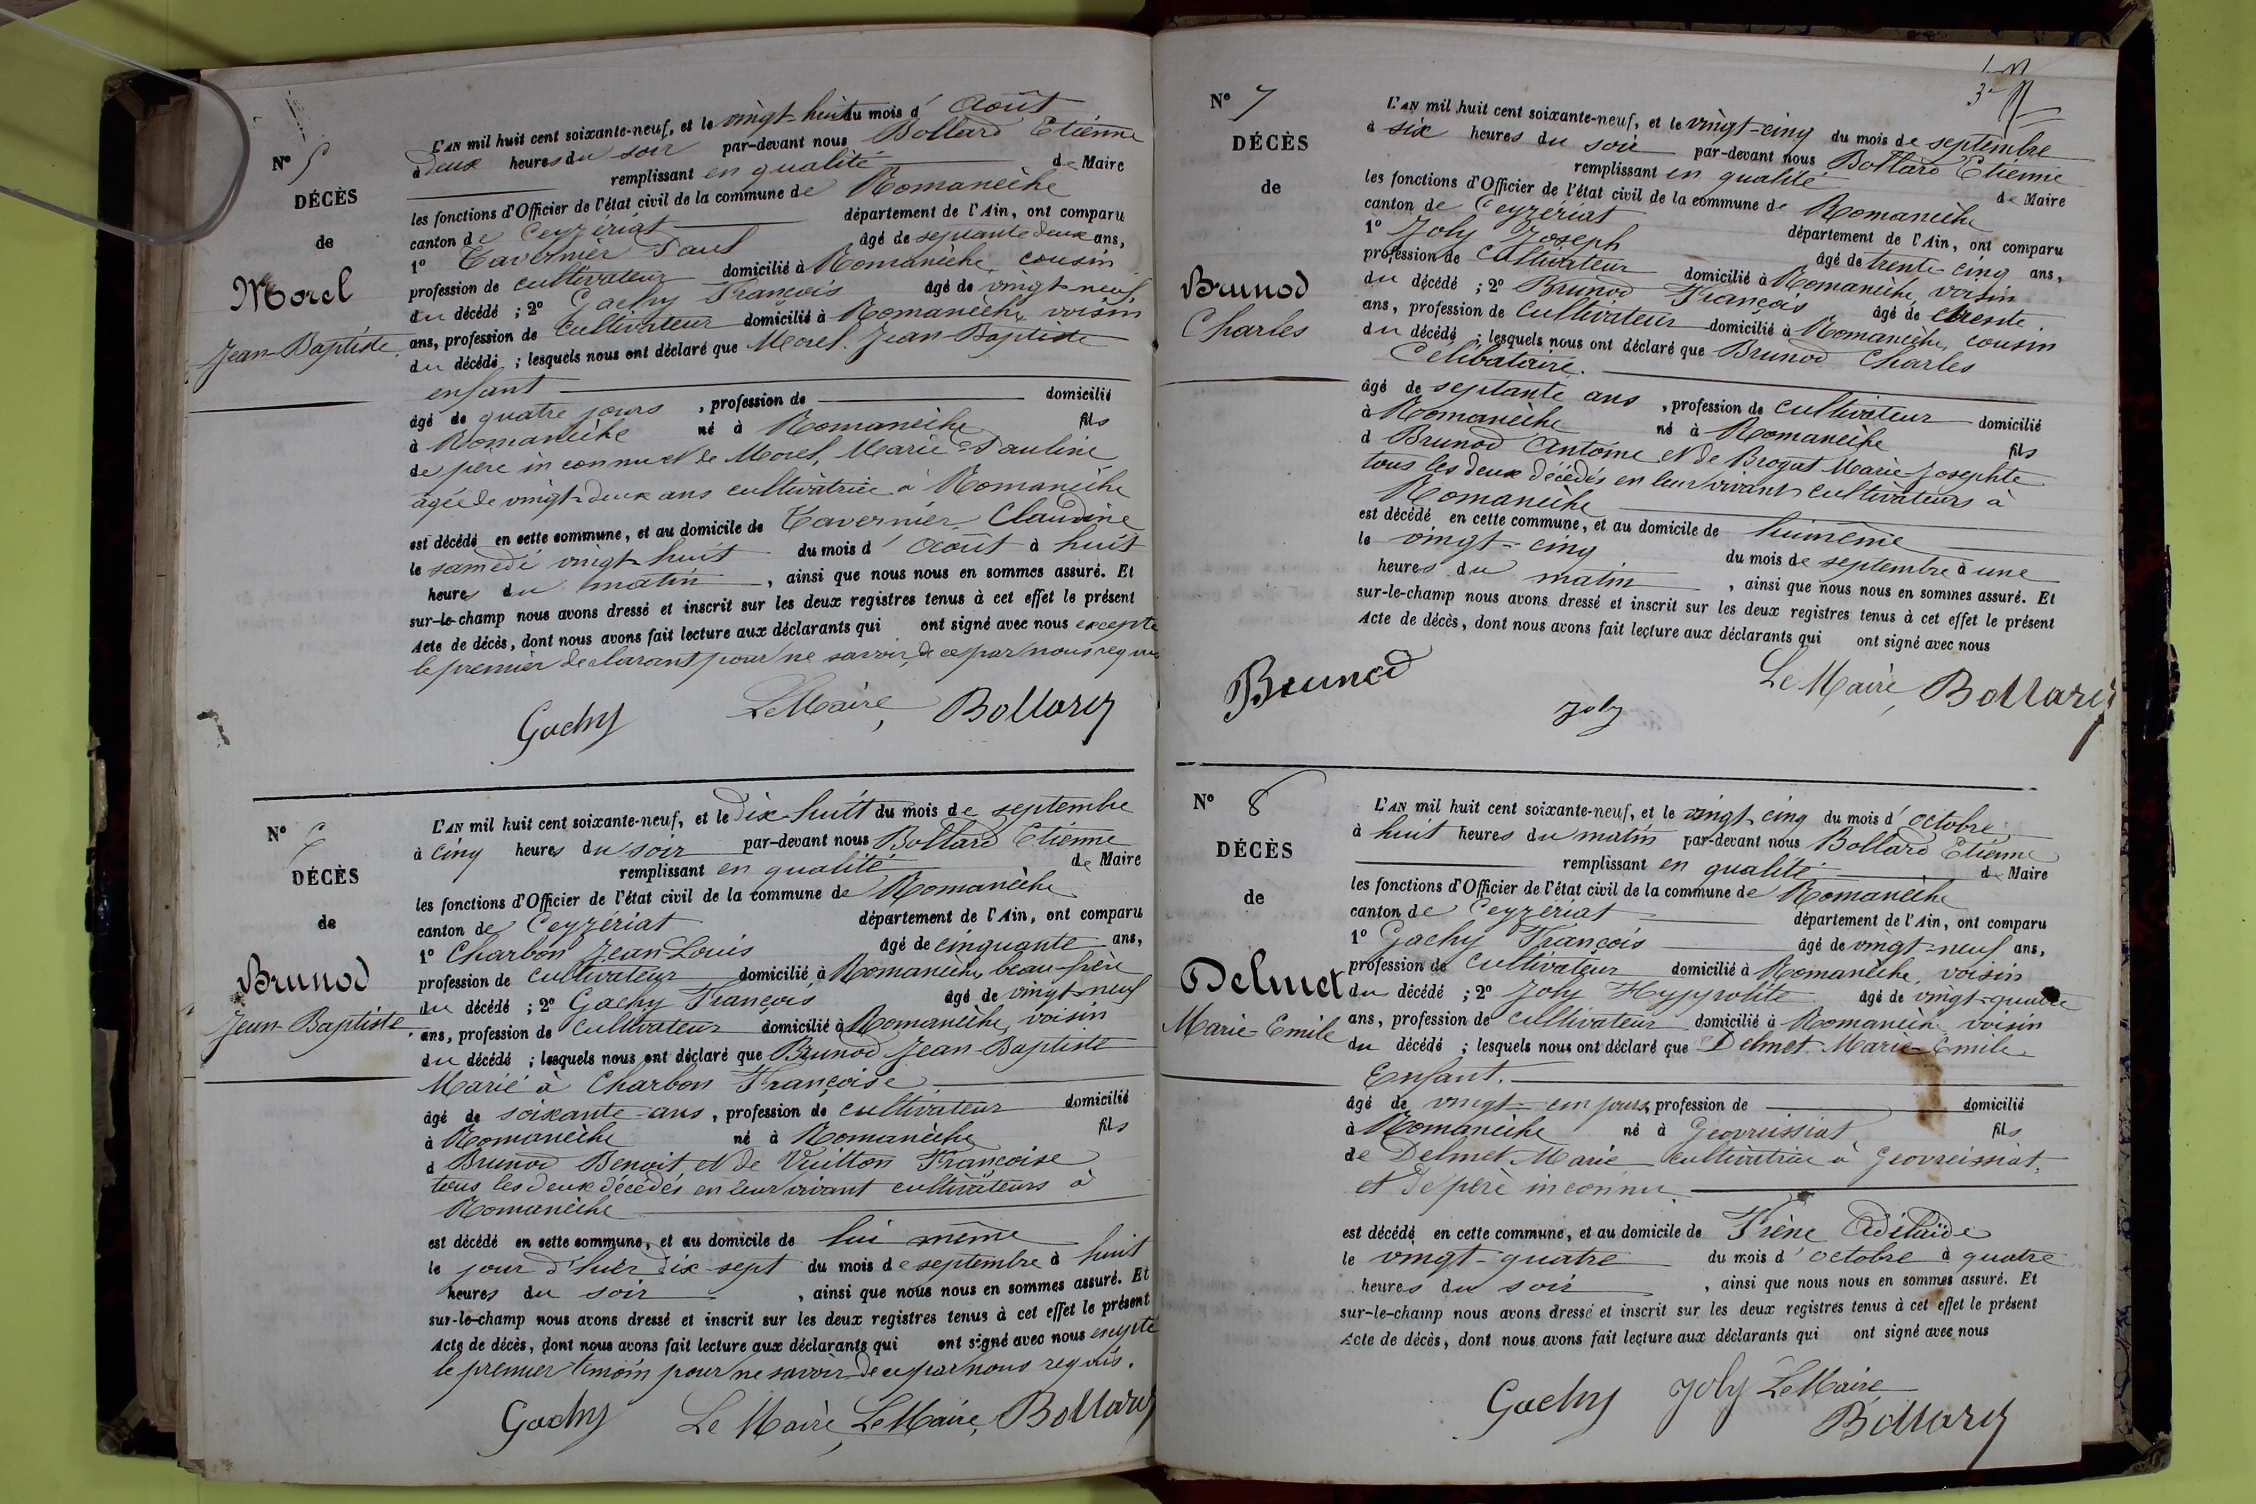 N° 5
DÉCÈS
de
Morel
Jean-Baptiste.
L'AN mil huit cent soixante-neuf, et le vingt-huit du mois d'Août
à deux heures du soir par-devant nous Bollard Etienne
remplissant en qualité de Maire
les fonctions d'Officier de l'état civil de la commune de Romanèche
canton de Ceyzériat département de l'Ain, ont comparu
1° Tavernier Paul âgé de septante deux ans,
profession de cultivateur domicilié à Romanèche, cousin
du décédé ; 2° Gachy François âgé de vingt-neuf
ans, profession de cultivateur domicilié à Romanèche, voisin
du décédé ; lesquels nous ont déclaré que Morel Jean-Baptiste
enfant
âgé de quatre jours, profession de domicilié
à Romanèche né à Romanèche fils
de père inconnu et de Morel, Marie-Pauline
agée de vingt-deux ans cultivatrice à Romanèche
est décédé en cette commune, et au domicile de Tavernier Claudine
le samedi vingt-huit du mois d'Août à huit
heures du matin, ainsi que nous nous en sommes assuré. Et
sur-le-champ nous avons dressé et inscrit sur les deux registres tenus à cet effet le présent
Acte de décès, dont nous avons fait lecture aux déclarants qui ont signé avec nous excepté
le premier déclarant pour ne savoir, de ce par nous requis
Gachy Le Maire, Bollard
N° 6
DÉCÈS
de
Brunod
Jean-Baptiste.
L'AN mil huit cent soixante-neuf, et le Dix-huit du mois de septembre
à cinq heures du soir par-devant nous Bollard Etienne
remplissant en qualité de Maire
les fonctions d'Officier de l'état civil de la commune de Romanèche
canton de Ceyzériat département de l'Ain, ont comparu
1° Charbon Jean-Louis âgé de cinquante ans,
profession de cultivateur domicilié à Romanèche, beau-frère
du décédé ; 2° Gachy François âgé de vingt-neuf
ans, profession de cultivateur domicilié à Romanèche, voisin
du décédé ; lesquels nous ont déclaré que Brunod Jean-Baptiste
Marié à Charbon Françoise
âgé de soixante-ans, profession de cultivateur domicilié
à Romanèche né à Romanèche fils
d Brunod Benoit et de Vuitton Françoise
tous les deux décédés en leur vivant cultivateurs à
Romanèche
est décédé en cette commune, et au domicile de lui même
le jour d'hier dix-sept du mois de septembre à huit
heures du soir, ainsi que nous nous en sommes assuré. Et
sur-le-champ nous avons dressé et inscrit sur les deux registres tenus à cet effet le présent
Acte de décès, dont nous avons fait lecture aux déclarants qui ont signé avec nous excepté
le premier témoin pour ne savoir de ce par nous requis.
Gachy Le Maire, Le Maire, Bollard
N° 7
DÉCÈS
de
Brunod
Charles
L'AN mil huit cent soixante-neuf, et le vingt-cinq du mois de septembre
à six heures du soir par-devant nous Bollard Etienne
remplissant en qualité de Maire
les fonctions d'Officier de l'état civil de la commune de Romanèche
canton de Ceyzériat département de l'Ain, ont comparu
1° Joly Joseph âgé de trente-cinq ans,
profession de Cultivateur domicilié à Romanèche, voisin
du décédé ; 2° Brunod François âgé de trente
ans, profession de Cultivateur domicilié à Romanèche, cousin
du décédé ; lesquels nous ont déclaré que Brunod Charles
Célibataire.
âgé de septante ans, profession de cultivateur domicilié
à Romanèche né à Romanèche fils
d Brunod Antoine et de Brogat Marie-Josephte
tous les deux décédés en leur vivant cultivateurs à
Romanèche
est décédé en cette commune, et au domicile de lui même
le vingt-cinq du mois de septembre à une
heures du matin, ainsi que nous nous en sommes assuré. Et
sur-le-champ nous avons dressé et inscrit sur les deux registres tenus à cet effet le présent
Acte de décès, dont nous avons fait lecture aux déclarants qui ont signé avec nous
Brunod Joly Le Maire, Bollard
N° 8
DÉCÈS
de
Delmet
Marie-Emile
L'AN mil huit cent soixante-neuf, et le vingt cinq du mois d'octobre
à huit heures du matin par-devant nous Bollard Etienne
remplissant en qualité de Maire
les fonctions d'Officier de l'état civil de la commune de Romanèche
canton de Ceyzériat département de l'Ain, ont comparu
1° Gachy François âgé de vingt-neuf ans,
profession de cultivateur domicilié à Romanèche, voisin
du décédé ; 2° Joly Hyppolite âgé de vingt-quatre
ans, profession de cultivateur domicilié à Romanèche voisin
du décédé ; lesquels nous ont déclaré que Delmet Marie-Emile
Enfant.
âgé de vingt-un jours, profession de domicilié
à Romanèche né à Geovreissiat fils
de Delmet Marie cultivatrice à Geovreissiat
et de père inconnu
est décédé en cette commune, et au domicile de Frène Adélaïde
le vingt-quatre du mois d'octobre à quatre
heures du soir, ainsi que nous nous en sommes assuré. Et
sur-le-champ nous avons dressé et inscrit sur les deux registres tenus à cet effet le présent
Acte de décès, dont nous avons fait lecture aux déclarants qui ont signé avec nous
Gachy Joly Le Maire
Bollard